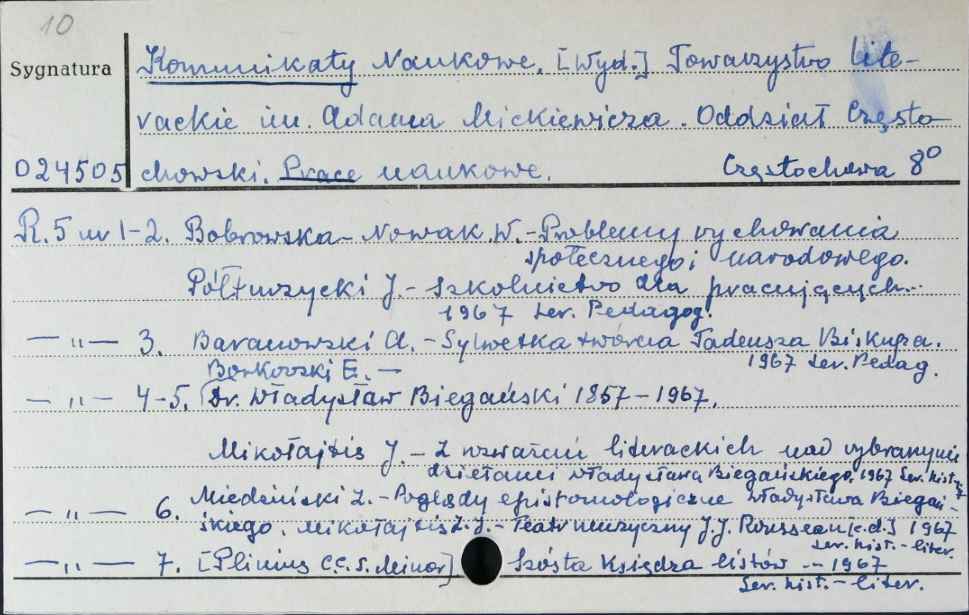 10
Sygnatura
Komunikaty Naukowe. [Wyd.] Towarzystwo Lite-
rackie im. Adama Mickiewicza. Oddział Często
024505 chowski. Prace naukowe. Częstochowa 8⁰
R. 5 nr 1-2. Bobrowska-Nowak W. - Problemy wychowania
społecznego i narodowego.
Półturzycki J. - Szkolnictwo dla pracujących.
1967 Ser. Pedagog.
— " — 3. Baranowski A. - Sylwetka twórcza Tadeusza Biskupa.
1967 Ser. Pedag.
Borkowski E. —
— " — 4-5. Dr. Władysław Biegański 1857-1967.
Mikołajtis J. - Z rozważań literackich nad wybranymi
dziełami Władysława Biegańskiego. 1967 Ser. hist.
— " — 6. Miedziński Z. - Poglądy epistomologiczne Władysława Biegań-
skiego. Mikołajtis J. - Teatr muzyczny J.J. Rousseau [c.d.] 1967
Ser. hist. - liter.
— " — 7. [Plinius C.C.S. Minor] Szósta Księdza listów -- 1967
Ser. hist. - liter.